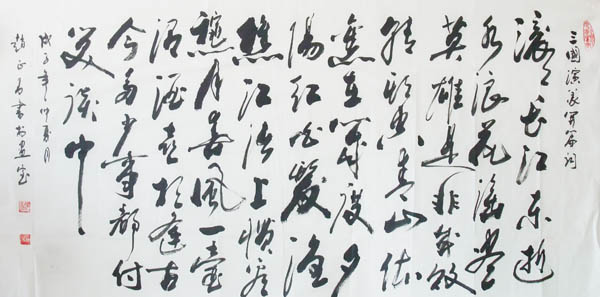 三國演義開篇词
滚〻长江东逝
水浪花淘尽
英雄是非成敗
转头空青山依
舊在幾度夕
陽红白髮渔
樵江渚上惯看
秋月春風一壶
浊酒喜相逢古
今多少事都付
笑談中
戊子年仲夏月
书於画室